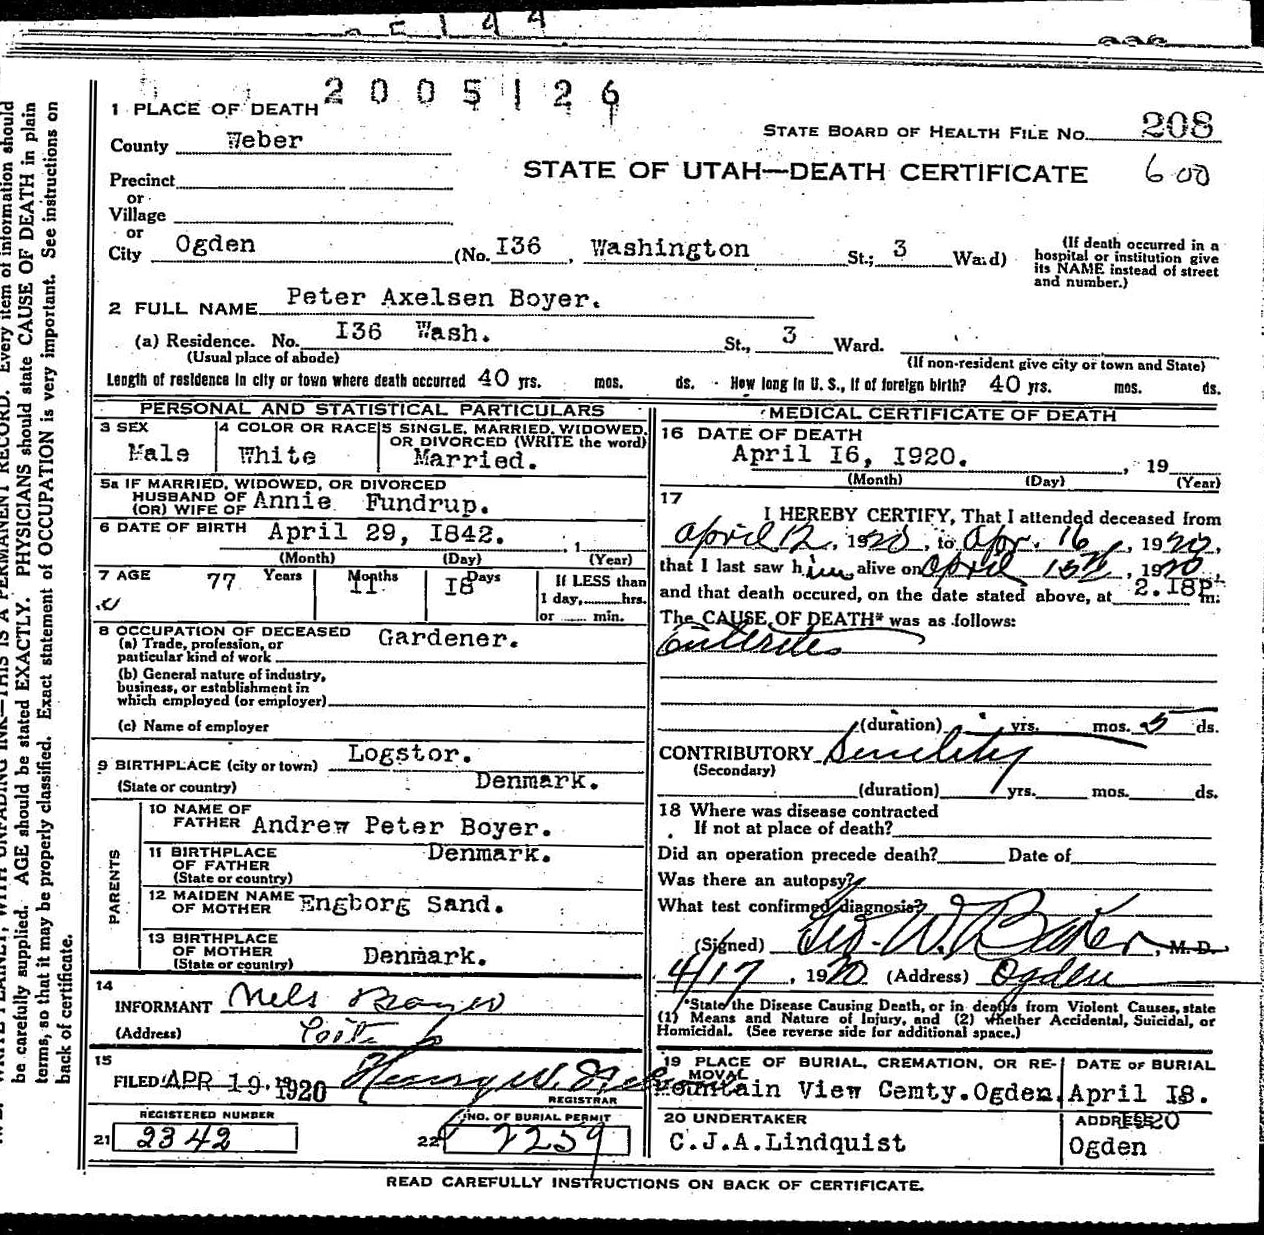 2005126
1 PLACE OF DEATH
STATE BOARD OF HEALTH FILE NO. 208
County Weber
STATE OF UTAH—DEATH CERTIFICATE 600
Precinct
or
Village
or
City Ogden (No. I36, Washington St.; 3 Ward)
(If death occurred in a hospital or institution give its NAME instead of street and number.)
2 FULL NAME Peter Axelsen Boyer.
(a) Residence. No. I36 Wash. St., 3 Ward.
(Usual place of abode) (If non-resident give city or town and State)
Length of residence in city or town where death occurred 40 yrs. mos. ds. How long in U. S., if of foreign birth? 40 yrs. mos. ds.
PERSONAL AND STATISTICAL PARTICULARS
3 SEX
Male
4 COLOR OR RACE
White
5 SINGLE, MARRIED, WIDOWED,
OR DIVORCED (WRITE the word)
Married.
5a IF MARRIED, WIDOWED, OR DIVORCED
HUSBAND OF
(OR) WIFE OF Annie Fundrup.
6 DATE OF BIRTH April 29, I842. , 1
(Month) (Day) (Year)
7 AGE 77 Years 11 Months I8 Days
If LESS than
1 day, hrs.
or min.
8 OCCUPATION OF DECEASED Gardener.
(a) Trade, profession, or
particular kind of work
(b) General nature of industry,
business, or establishment in
which employed (or employer)
(c) Name of employer
9 BIRTHPLACE (city or town) Logstor.
(State or country) Denmark.
PARENTS
10 NAME OF
FATHER Andrew Peter Boyer.
11 BIRTHPLACE
OF FATHER
(State or country) Denmark.
12 MAIDEN NAME
OF MOTHER Engborg Sand.
13 BIRTHPLACE
OF MOTHER
(State or country) Denmark.
14
INFORMANT Nels Boyer
(Address)
15
FILED APR 19 1920 Henry W.
REGISTRAR
REGISTERED NUMBER
21 2342
NO. OF BURIAL PERMIT
22 2259
MEDICAL CERTIFICATE OF DEATH
16 DATE OF DEATH
April I6, I920. , 19
(Month) (Day) (Year)
17
I HEREBY CERTIFY, That I attended deceased from
April 12, 1920, to Apr. 16, 1920,
that I last saw him alive on April 15th, 1920
and that death occured, on the date stated above, at 2.I8P m.
The CAUSE OF DEATH* was as follows:
Enterites
(duration) yrs. mos. 5 ds.
CONTRIBUTORY Senility
(Secondary)
(duration) yrs. mos. ds.
18 Where was disease contracted
If not at place of death?
Did an operation precede death? Date of
Was there an autopsy?
What test confirmed diagnosis?
(Signed) Geo. W. Baker, M. D.
4/17, 1920 (Address) Ogden
*State the Disease Causing Death, or in deaths from Violent Causes, state
(1) Means and Nature of Injury, and (2) whether Accidental, Suicidal, or
Homicidal. (See reverse side for additional space.)
19 PLACE OF BURIAL, CREMATION, OR RE-
MOVAL
Mountain View Cemty.Ogden.
DATE OF BURIAL
April I8.
1920
20 UNDERTAKER
C.J.A.Lindquist
ADDRESS
Ogden
READ CAREFULLY INSTRUCTIONS ON BACK OF CERTIFICATE.
WITH UNFADING INK—THIS IS A PERMANENT RECORD. Every item of information should
be carefully supplied. AGE should be stated EXACTLY. PHYSICIANS should state CAUSE OF DEATH in plain
terms, so that it may be properly classified. Exact statement of OCCUPATION is very important. See instructions on
back of certificate.